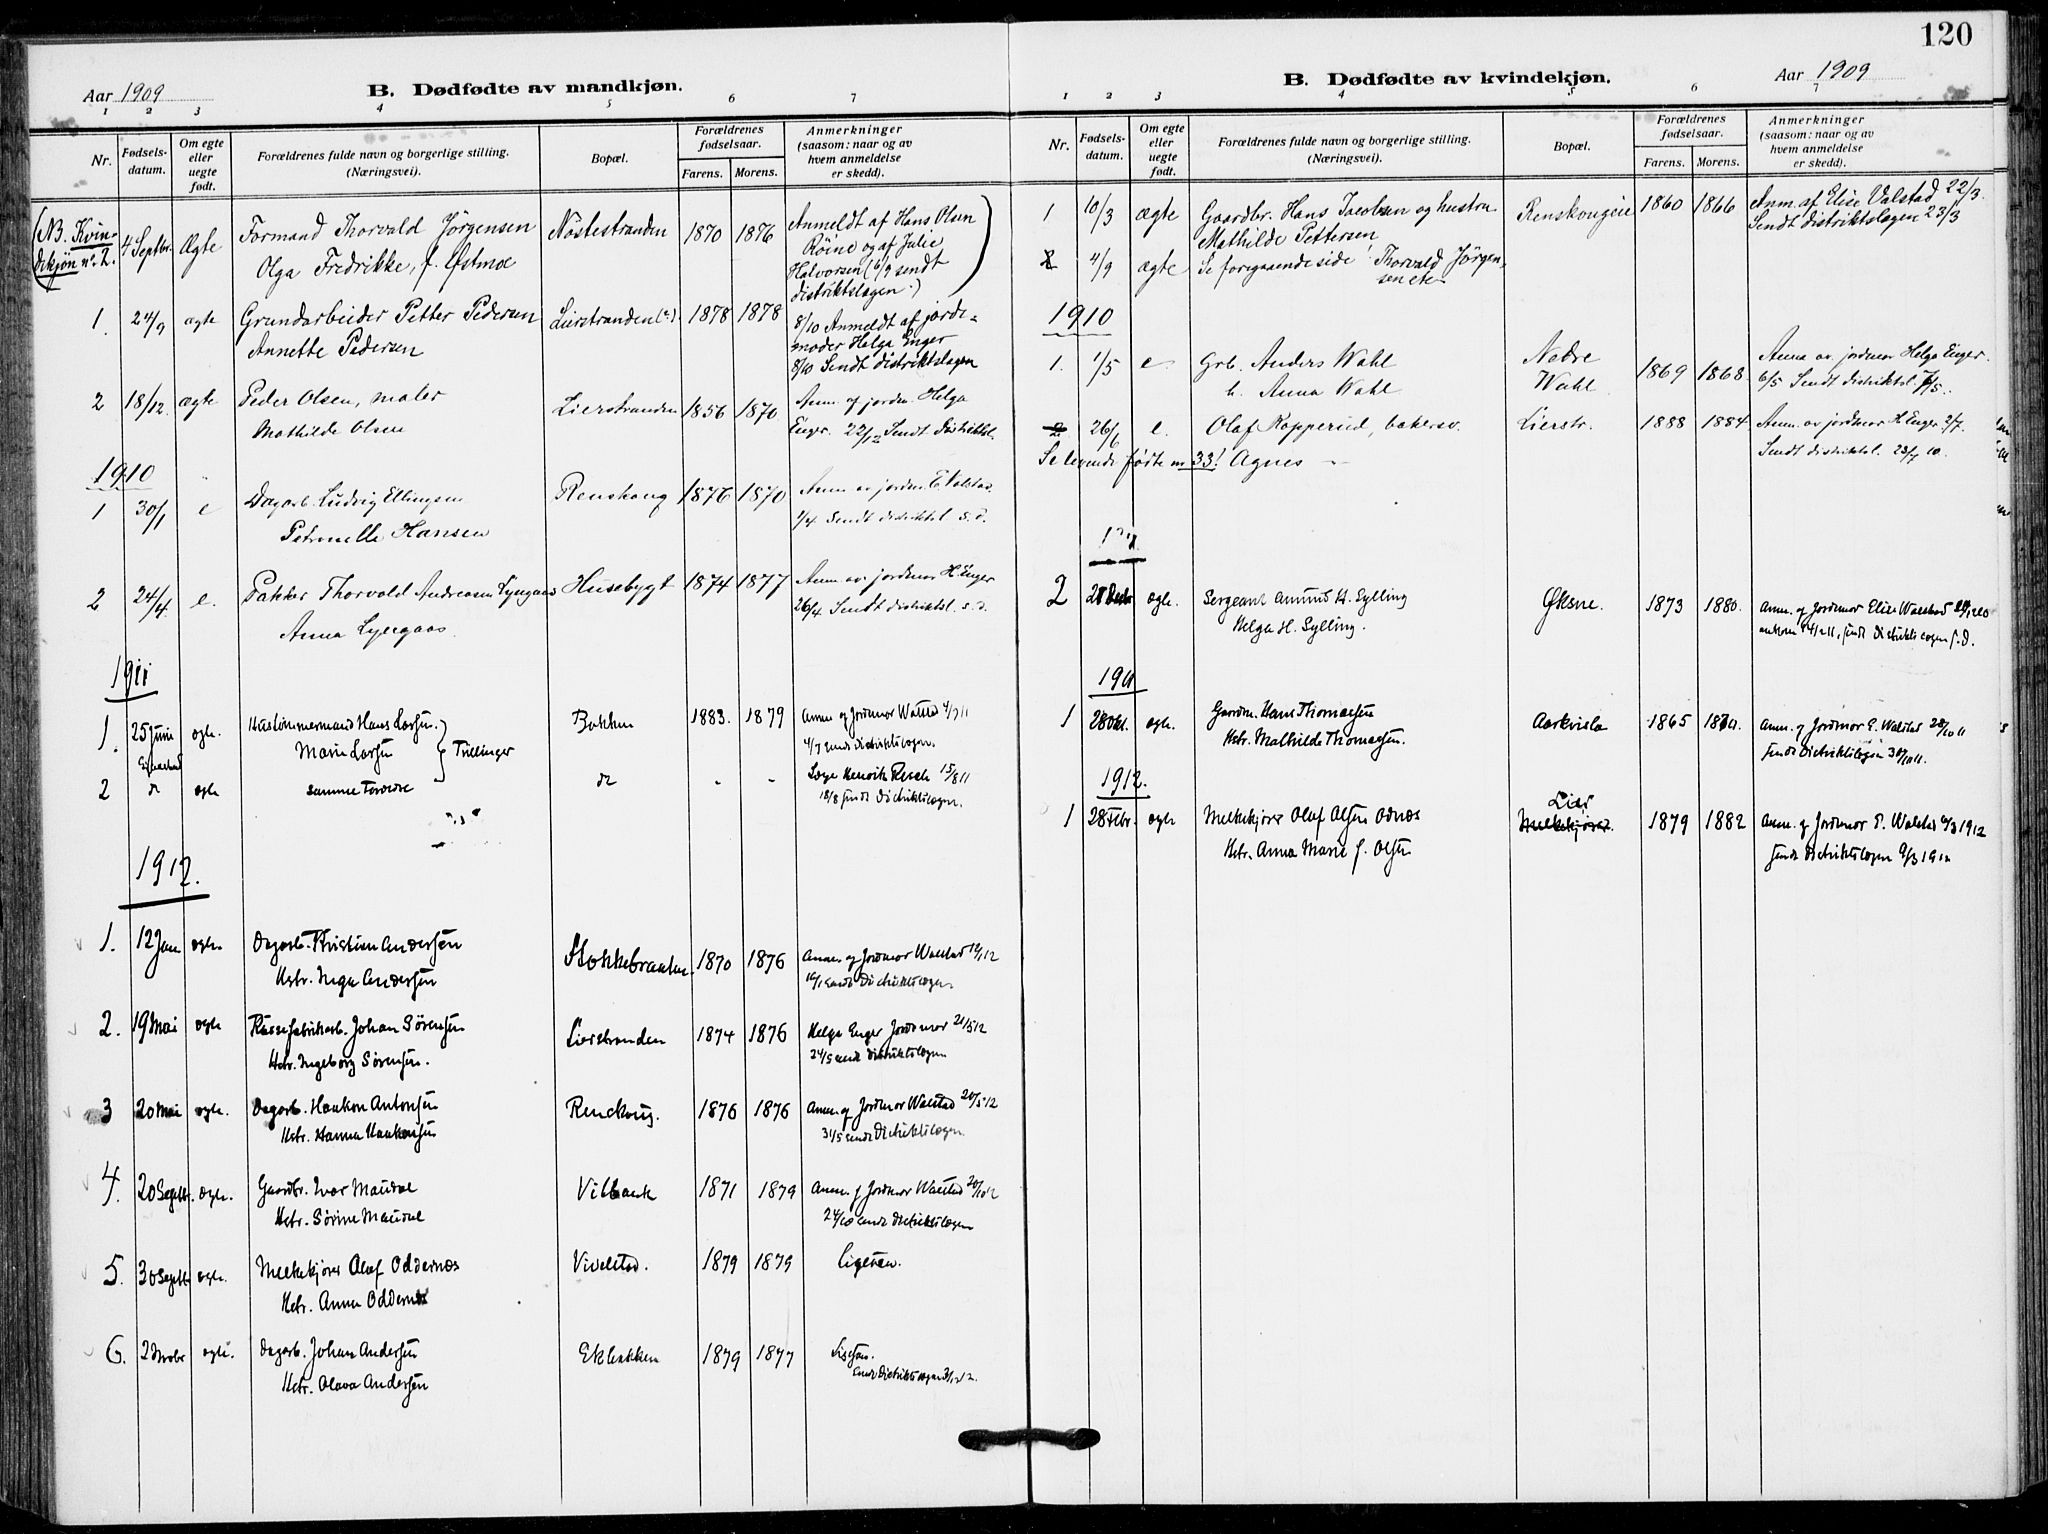 120
Aar 1909
B. Dødfødte av mandkjøn.
1 2 3 4 5 6 7
Nr.
Fødsels-
datum.
Om egte
eller
uegte
født.
Forældrenes fulde navn og borgerlige stilling.
(Næringsvei).
Bopæl.
Forældrenes
fødselsaar.
Farens. Morens.
Anmerkninger
(saasom: naar og av
hvem anmeldelse
er skedd).
(NB. Kvin-
dekjøn no. 2. 4 Septbr. Ægte Formand Thorvald Jørgensen Nøstestranden 1870 1876 Anmeldt af Hans Olsen
Olga Fredrikke, f. Østmoe Røine og af Julie
Halvorsen (6/9 sendt
distriktslægen.)
1 24/9 ægte Grundarbeider Petter Pedersen Lierstranden 1878 1878 8/10 Anmeldt af jorde-
Annette Pedersen moder Helga Enger
8/10 Sendt distriktslægen
2 18/12. ægte Peder Olsen, maler Lierstranden 1856 1870 Anm. af jordm. Helga
Mathilde Olsen Enger. 22/12 Sendt distriktsl.
1910
1 30/1 e Dagarb. Ludvig Ellingsen Renskoug 1876 1870 Anm. av jordm. E. Valstad.
Petronelle Hansen 1/4 Sendt distriktsl. s. d.
2 24/4. e. Pakker Thorvald Andreasen Lyngaas Husebygt 1874 1877 Anm. av. jordmor H. Enger
Anna Lyngaas. 26/4. Sendt distriktsl. s. d.
1911
1. 25 Juni egte. Hustømmermand Hans Larsen. Bakken 1883. 1879 Anm. af Jordmor Walstad 4/7 11
Marie Larsen } Trillinger 4/7 sendt Distriktslægen.
2 do egte samme Forældre do - - Læge Henrik Resch 15/8 11
18/8 sendt Distriktslægen.
1912.
1. 12 Jan egte. Dagarb. Kristian Andersen Stokkebraaten. 1870 1876 Anm. af Jordmor Walstad
Hstr. Inga Andersen sendt Distriktslægen.
2. 19 Mai egte Johan Sørensen Lierstranden 1874 1876 Helga Enger Jordmor 21/5 12
Hstr. Ingeborg Sørensen. 24/5 sendt Distriktslægen
3 20 Mai egte. Dagarb. Haakon Antonsen Renskoug. 1876 1876 Anm. af Jordmor Walstad 20/5 12
Hstr. Hanna Haakonsen 31/5 sendt Distriktslægen.
4. 20 Septbr. egte. Gaardbr. Ivar Maudal Vilbank 1871 1879 Anm. af Jordmor Walstad 20/10 12
Hstr. Sørine Maudal 24/10 sendt Distriktslægen
5. 30 Septbr egte. Melkekjører Olaf Oddernæs Vivelstad. 1879 1879 Ligesaa.
Hstr. Anna Oddernæs
6. 2 Novbr egte. Dagarb. Johan Andersen Ekbakken 1879 1877 Ligesaa.
Hstr. Olava Andersen sendt Distriktslægen
B. Dødfødte av kvindekjøn.
Aar 1909
1 2 3 4 5 6 7
Nr.
Fødsels-
datum.
Om egte
eller
uegte
født.
Forældrenes fulde navn og borgerlige stilling.
(Næringsvei).
Bopæl.
Forældrenes
fødselsaar.
Farens. Morens.
Anmerkninger
(saasom: naar og av
hvem anmeldelse
er skedd).
1 10/3 ægte Gaardbr. Hans Jacobsen og hustru Renskougeie 1860 1866 Anm. af Elise Valstad 22/3.
Mathilde Pettersen Sendt distriktslægen 23/3
2 4/9 ægte Se foregaaende side! Thorvald Jørgen-
sen etc
1910
1. 1/5 e Grb. Anders Wahl Nedre 1869 1868. Anm. av. jordmor Helga Enger.
h. Anna Wahl Wahl 6/5 Sendt distriktsl. 7/5.
2 26/6 e. Olaf Kopperud, bakersv. Lierstr. 1888 1884 Anm. av jordmor H. Enger 2/7.
Se levende fødte nr 33! Agnes Sendt distriktsl. 10.
2 egte. Sergeant Amund H. Sylling Øksne. 1873 1880. Anm. af Jordmor Elise Walstad
Helga H. Sylling. sendt Distriktslægen s. d.
1911
1 28 Okt. egte. Gaardm. Hans Thomasen Aarkvisla 1865 Anm. af Jordmor E. Walstad 28/10 11
Hstr. Mathilde Thomassen. sendt Distriktslægen 30/10 11.
1912.
1 28 Febr. egte Melkekjører Olaf Olsen Odnæs Lier 1879 1882 Anm. af Jordmor E. Walstad 1912
Melkekjører.
Hstr. Anna Marie f. Olsen sendt Distriktslægen 9/3 1912